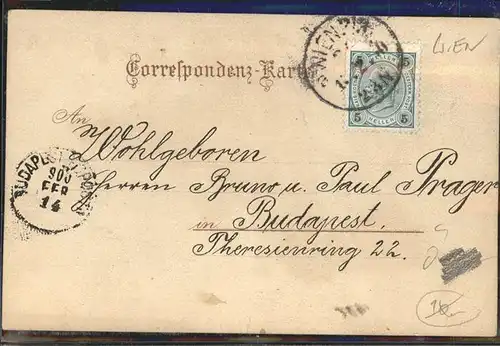 WIEN
Correspondenz-Karte
5 5
HELLER
5 5
An
Wohlgeboren
Herren Bruno u. Paul Prager
in Budapest.
Theresienring 22.
BUDAPEST
900
FEB
14
WIEN